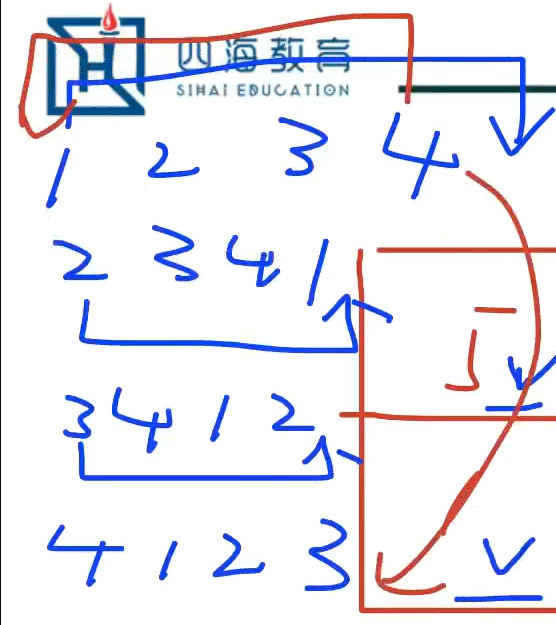 四海教育
SIHAI EDUCATION
1 2 3 4
2 3 4 1
3 4 1 2
4 1 2 3